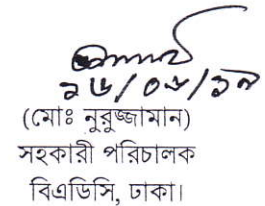 ২৬/০৬/১৯
(মোঃ নুরুজ্জামান)
সহকারী পরিচালক
বিএডিসি, ঢাকা।